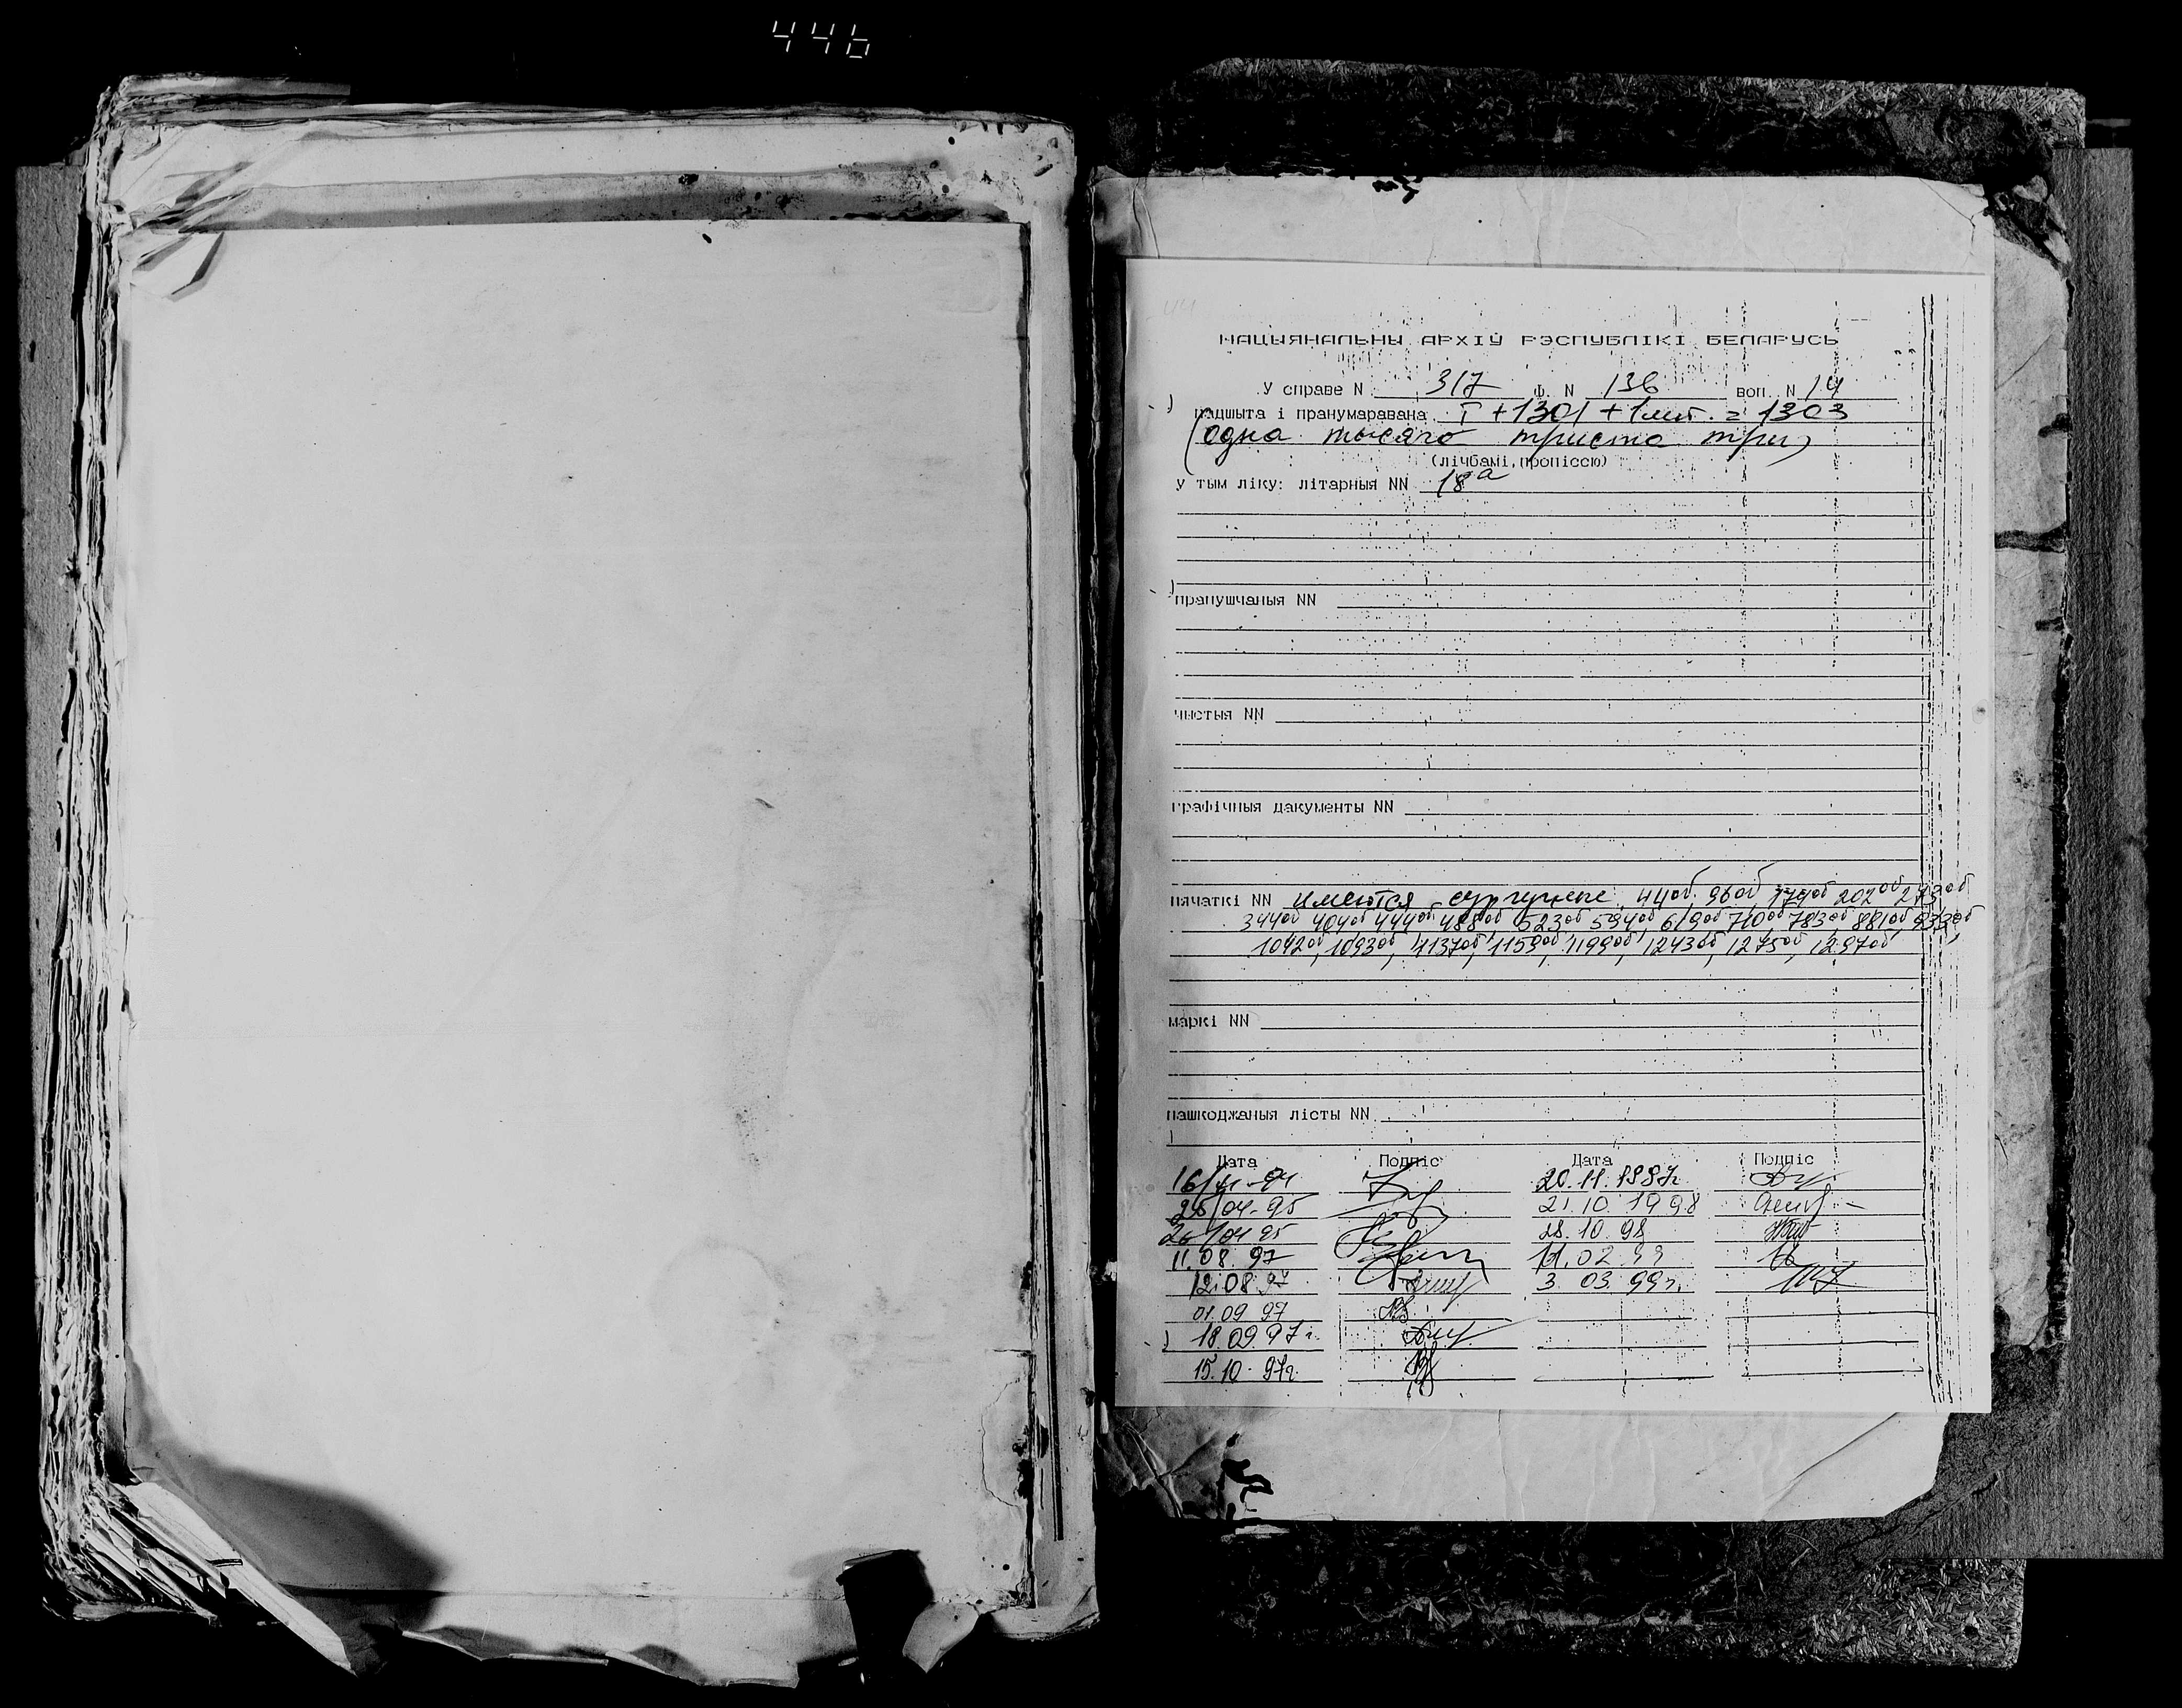 446
НАЦЫЯНАЛЬНЫ АРХІЎ РЭСПУБЛІКІ БЕЛАРУСЬ
У справе N 317 Ф. N 136 воп. N 14
падшыта і пранумаравана I + 1301 + 1 лит. = 1303
(одна тысяча триста три)
(лічбамі, пропіссю)
у тым ліку: літарныя NN 18а
прапушчаныя NN
чыстыя NN
графічныя дакументы NN
пячаткі NN имеются сургучные: 44об, 96об, 179об 202об 273об
344об 404об 444об 488об, 523об 594об, 619об 710об, 783об, 881об, 933об,
1042об, 1093об, 1137об, 1159об, 1199об, 1243об, 1275об, 1297об
маркі NN
пашкоджаныя лісты NN
Дата Подпіс Дата Подпіс
20.11.1997г
26/04-95 21.10.1998
26/04 95 28.10.98
11.08.97 11.02.99
12.08.97 3.03.99г.
01.09 97
18.09.97г.
15.10-97г.